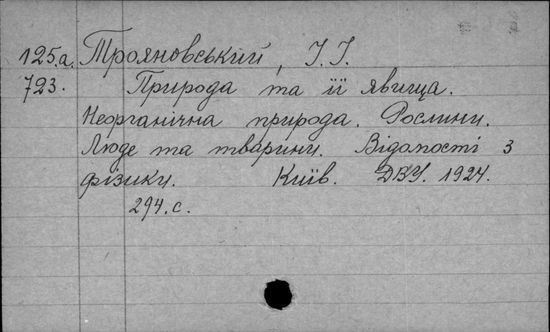 125.а. Трояновський, І. І.
723. Природа та її явища.
Неорганічна природа. Рослини.
Люде та тварини. Відомості з
фізики. Київ. ДВУ. 1924.
294. с.